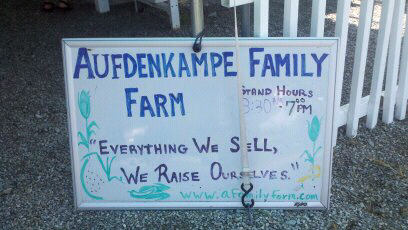 AUFDENKAMPE FAMILY
FARM
STAND HOURS
3:30 - 7PM
"EVERYTHING WE SELL,
WE RAISE OURSELVES."
www.afamilyfarm.com